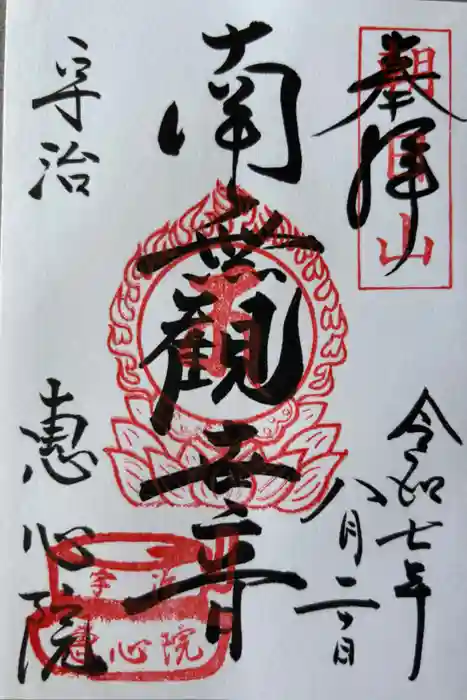 奉拝
朝日山
令和七年
八月二十日
南無観世音
宇治
恵心院
宇治
恵心院